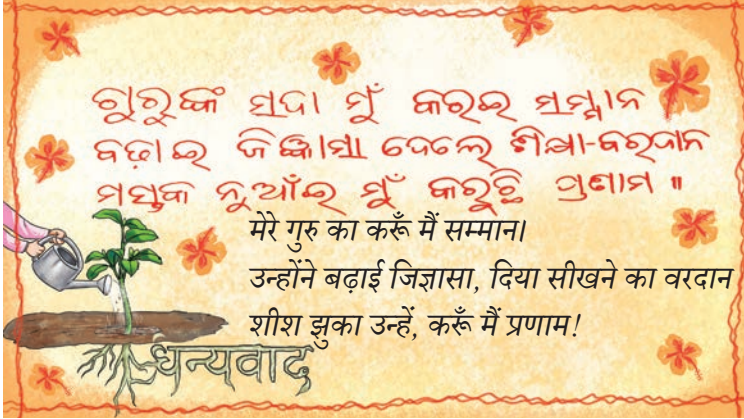 ଗୁରୁଙ୍କ ସଦା ମୁଁ କରଇ ସମ୍ମାନ
ବଢ଼ାଇ ଜିଜ୍ଞାସା ଦେଲେ ଶିକ୍ଷା-ବରଦାନ
ମସ୍ତକ ନୁଆଁଇ ମୁଁ କରୁଛି ପ୍ରଣାମ ॥
मेरे गुरु का करूँ मैं सम्मान।
उन्होंने बढ़ाई जिज्ञासा, दिया सीखने का वरदान
शीश झुका उन्हें, करूँ मैं प्रणाम!
धन्यवाद